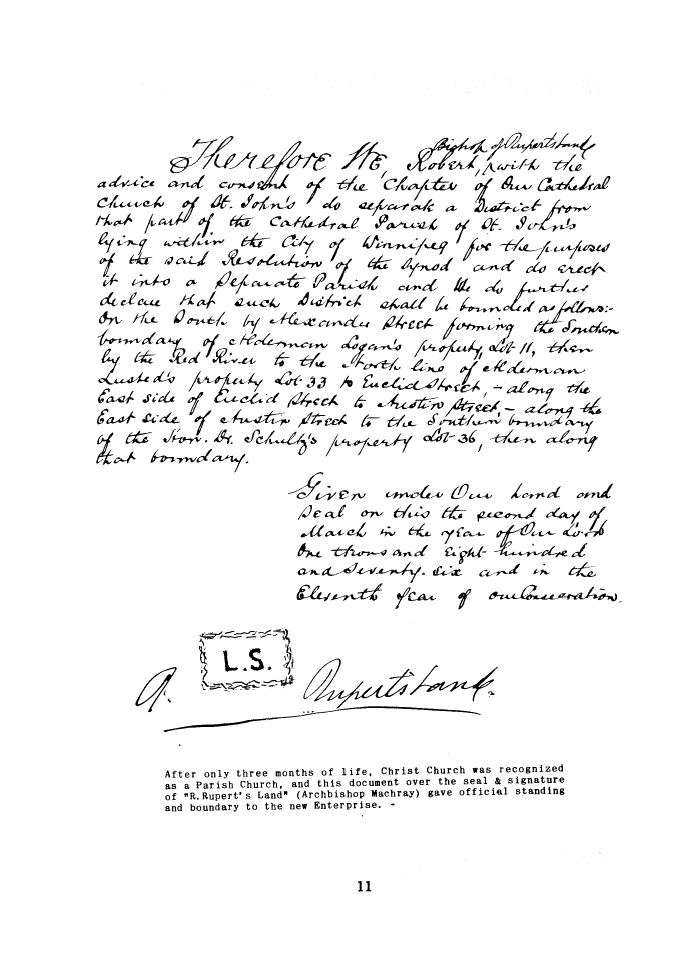 Bishop of Rupertsland
Therefore We, Robert, with the
advice and consent of the Chapter of Our Cathedral
Church of St. John's do separate a District from
that part of the Cathedral Parish of St. John's
lying within the City of Winnipeg for the purposes
of the said Resolution of the Synod and do erect
it into a Separate Parish and We do further
declare that such District shall be bounded as follows:-
On the South by Alexander Street forming the Southern
boundary of Alderman Logan's property, Lot 11, then
by the Red River to the North line of Alderman
Lusted's property Lot 33 to Euclid Street, - along the
East side of Euclid Street to Austin Street, - along the
East side of Austin Street to the Southern boundary
of the Hon. Dr. Schultz's property Lot 36, then along
that boundary.
Given under Our hand and
Seal on this the second day of
March in the year of Our Lord
One thousand Eight hundred
and Seventy-six and in the
Eleventh year of our Consecration.
L.S.
R. Rupertsland.
After only three months of life, Christ Church was recognized
as a Parish Church, and this document over the seal & signature
of "R.Rupert's Land" (Archbishop Machray) gave official standing
and boundary to the new Enterprise. -
11